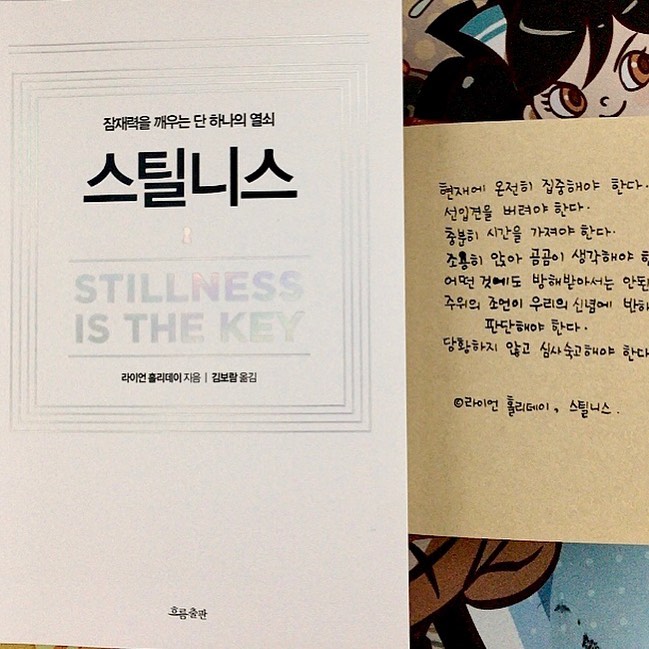 잠재력을 깨우는 단 하나의 열쇠
스틸니스
STILLNESS
IS THE KEY
라이언 홀리데이 지음 | 김보람 옮김
흐름출판
현재에 온전히 집중해야 한다.
선입견을 버려야 한다.
충분히 시간을 가져야 한다.
조용히 앉아 곰곰이 생각해야
어떤 것에도 방해받아서는
주위의 조언이 우리의 신념에
판단해야 한다.
당황하지 않고 심사숙고해야 한다
©라이언 홀리데이, 스틸니스.